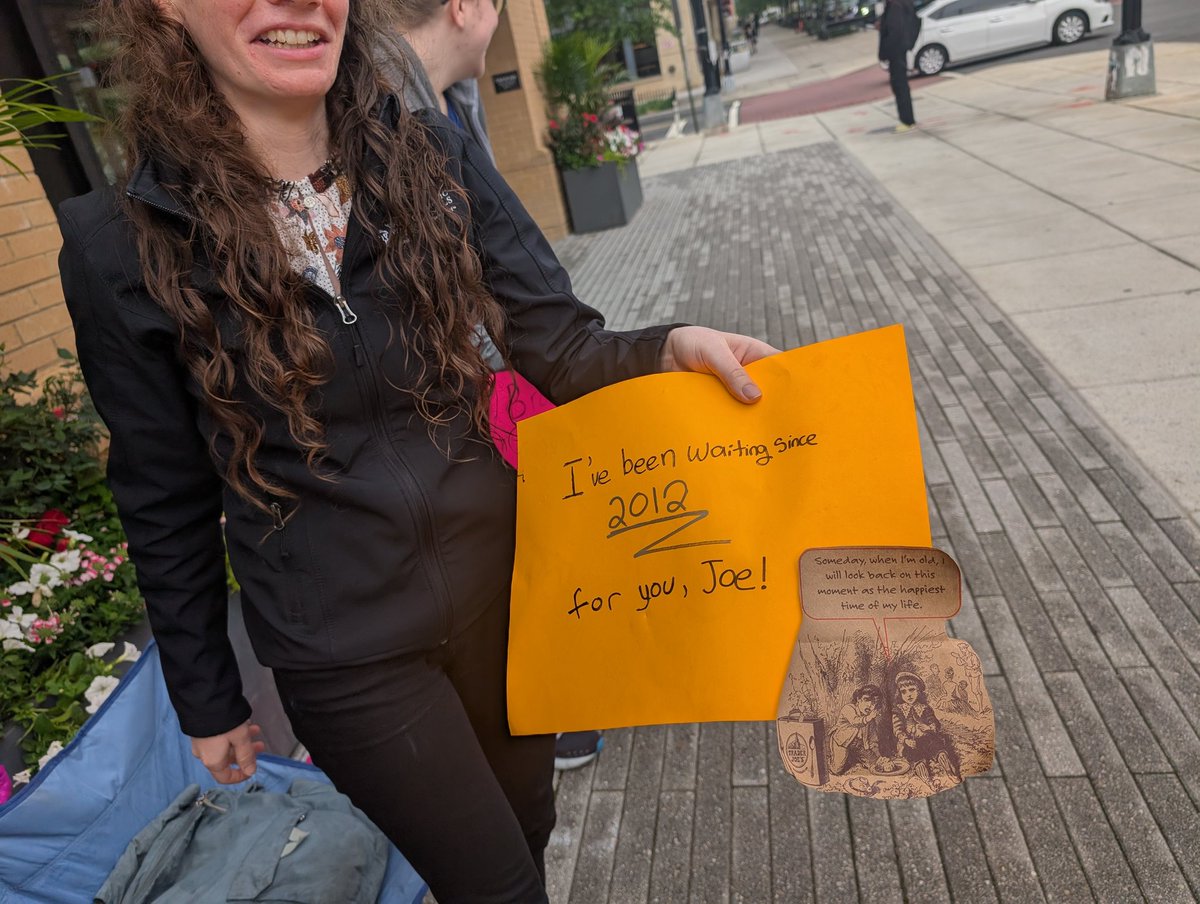 I've been waiting since
2012
for you, Joe!
Someday, when I'm old, I
will look back on this
moment as the happiest
time of my life.
TRADER
JOE'S